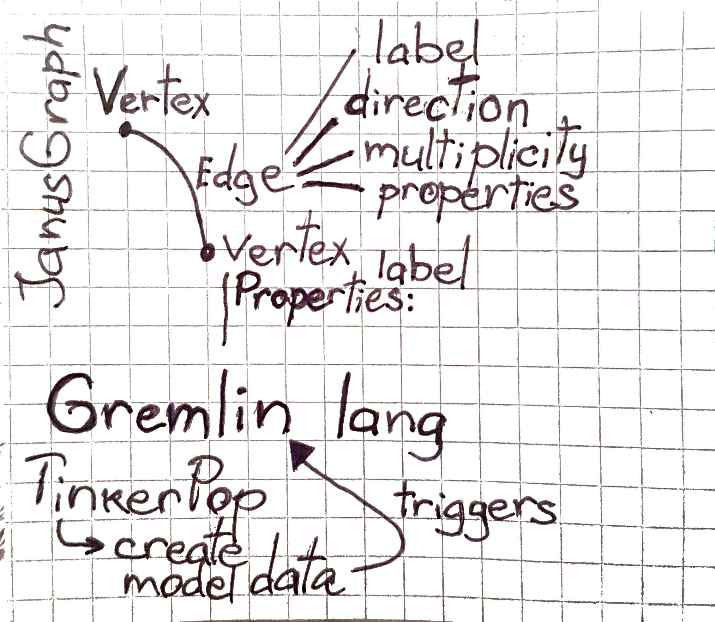 JanusGraph
Vertex
Edge
label
direction
multiplicity
properties
Vertex label
Properties:
Gremlin lang
TinkerPop
create
model data
triggers